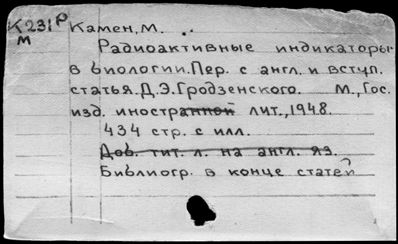 К231Р Камен, М. ..
М
Радиоактивные индикаторы
в биологии. Пер. с англ. и вступ.
статья. Д.Э. Гродзенского. М., Гос.
изд. иностранной лит., 1948.
434 стр. с илл.
Доб. тит. л. на англ. яз.
Библиогр. в конце статей